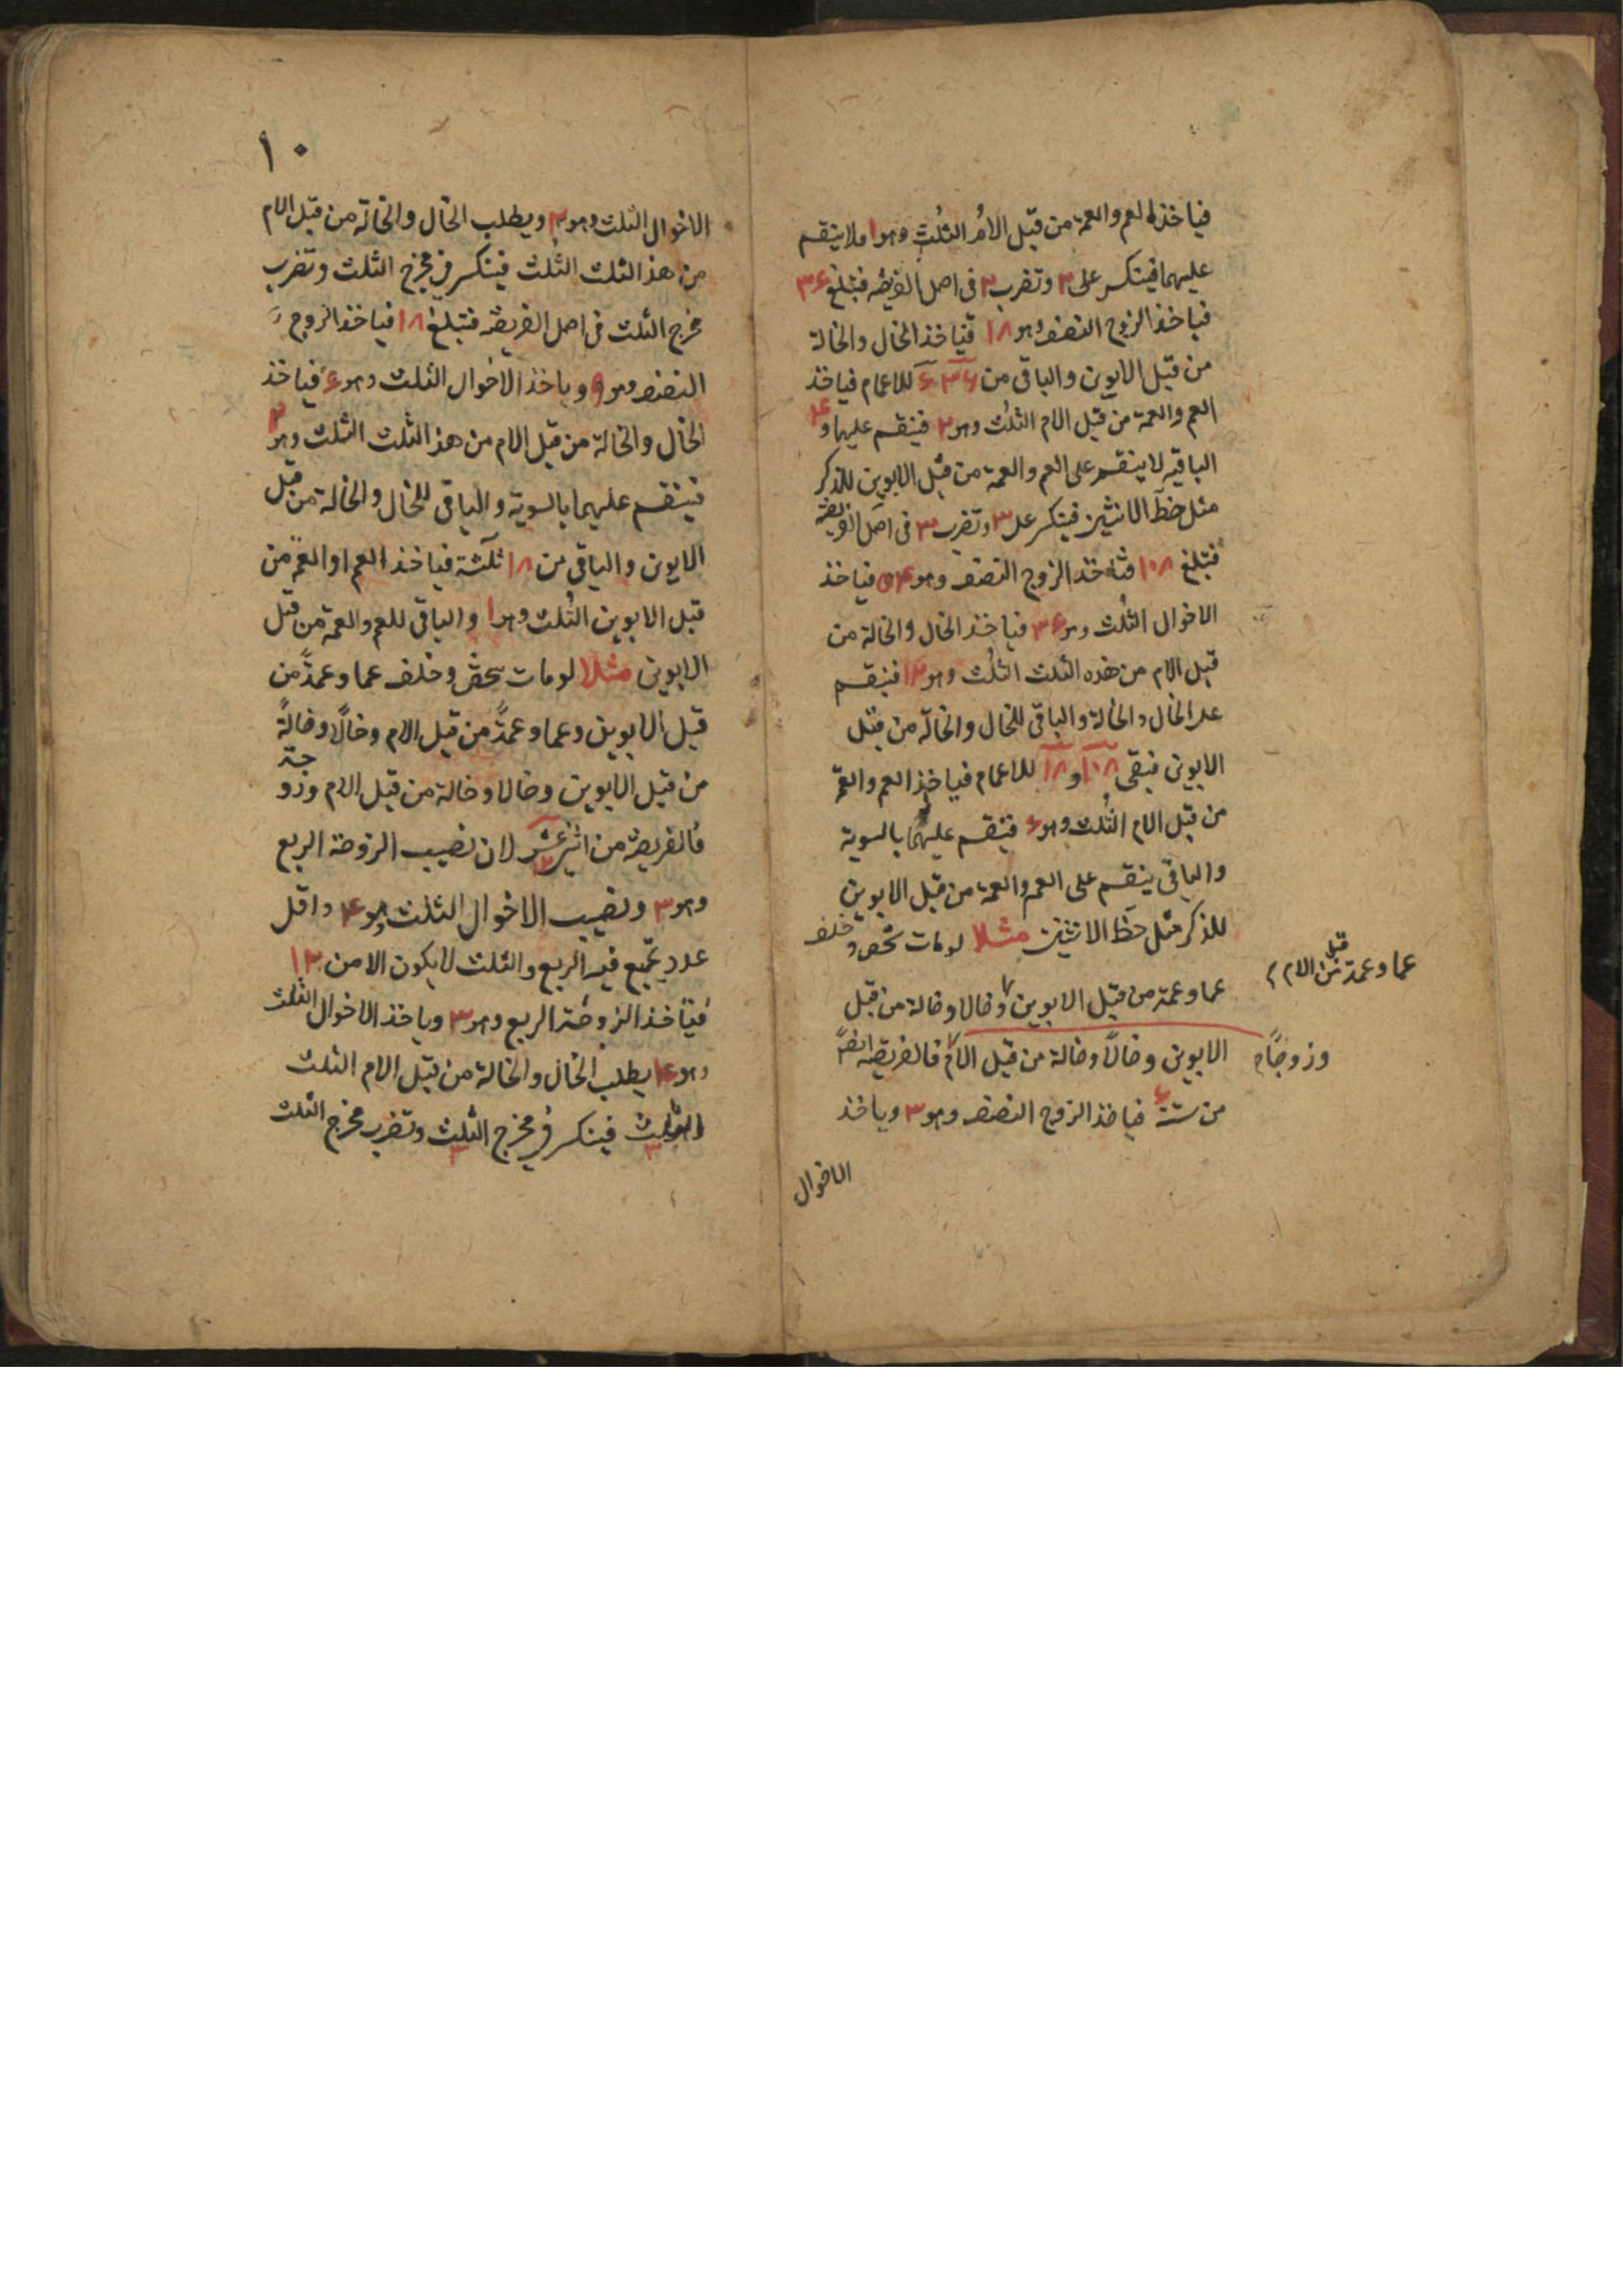 فياخذ العم والعمة من قبل الام الثلث وهو ا ولا ينقسم
عليهما فينكسر على ۲ وتضرب ۲ فى اصل الفريضه فتبلغ ۳۶
فياخذ الزوج النصف وهو ۱۸ فياخذ الخال والخالة
من قبل الابوين والباقى من ۳۶ ۶ للاعمام فياخذ
العم والعمة من قبل الام الثلث وهو ۲ فينقسم عليهما و ۴
الباقيه لا ينقسم على العم والعمة من قبل الابوين للذكر
مثل حظ الانثيين فينكسر على ۳ وتضرب ۳ فى اصل الفريضة
فتبلغ ۱۰۸ فياخذ الزوج النصف وهو ۵۴ فياخذ
الاخوال الثلث وهو ۳۶ فياخذ الخال والخالة من
قبل الام من هذه الثلث الثلث وهو ۱۲ فينقسم
على الخال والخالة والباقى للخال والخالة من قبل
الابوين فبقى ۱۰۸ و ۱۸ للاعمام فياخذ العم والعمة
من قبل الام الثلث وهو ۶ فينقسم عليهما بالسوية
والباقى ينقسم على العم والعمة من قبل الابوين
للذكر مثل حظ الانثيين مثلا لو مات شخص وخلف
عما وعمة من قبل الابوين وخالا وخالة من قبل
عما وعمة من قبل الام
الابوين وخالاً وخالة من قبل الام فالفريضة ايضاً
وزوجاً
من ستة ۶ فياخذ الزوج النصف وهو ۳ وياخذ
الاخوال
۱۰
الاخوال الثلث وهو ۲ ويطلب الخال والخالة من قبل الام
من هذ الثلث الثلث فينكسر فى مخرج الثلث وتضرب
مخرج الثلث فى اصل الفريضة فتبلغ ۱۸ فياخذ الزوج
النصف وهو ۹ وياخذ الاخوال الثلث وهو ۶ فياخذ
الخال والخالة من قبل الام من هذ الثلث الثلث وهو ۲
فينقسم عليهما بالسوية والباقى للخال والخالة من قبل
الابوين والباقى من ۱۸ ثلثة فياخذ العم او العمة من
قبل الابوين الثلث وهو ۱ والباقى للعم والعمة من قبل
الابوين مثلا لو مات شخص وخلف عما وعمةً من
قبل الابوين وعما وعمةً من قبل الام وخالًا وخالةً
من قبل الابوين وخالا وخالة من قبل الام وزوجة
فالفريضة من اثنى عشر ۱۲ لان نصيب الزوجة الربع
وهو ۳ ونصيب الاخوال الثلث وهو ۴ واقل
عدد يجمع فيه الربع والثلث لا يكون الا من ۱۲
فياخذ الزوجة الربع وهو ۳ وياخذ الاخوال الثلث
وهو ۴ يطلب الخال والخالة من قبل الام الثلث
الثلث ۳ فينكسر فى مخرج الثلث ۳ وتضرب مخرج الثلث